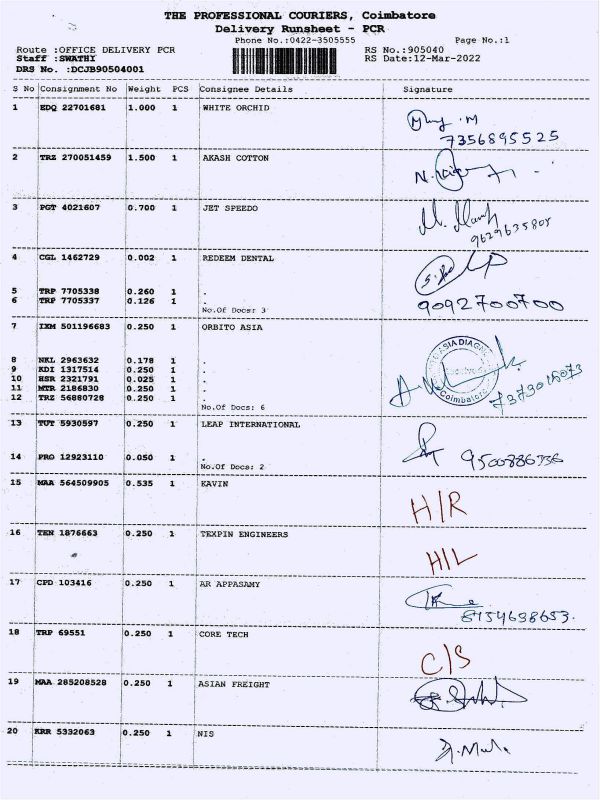 THE PROFESSIONAL COURIERS, Coimbatore
Delivery Runsheet - PCR
Phone No.:0422-3505555 Page No.:1
Route :OFFICE DELIVERY PCR RS No.:905040
Staff :SWATHI RS Date:12-Mar-2022
DRS No. :DCJB90504001
S No Consignment No Weight PCS Consignee Details Signature
1 EDQ 22701681 1.000 1 WHITE ORCHID
7356895525
2 TRZ 270051459 1.500 1 AKASH COTTON
3 PGT 4021607 0.700 1 JET SPEEDO
9629635805
4 CGL 1462729 0.002 1 REDEEM DENTAL
5 TRP 7705338 0.260 1 .
6 TRP 7705337 0.126 1 .
No.Of Docs: 3
9092700700
7 IXM 501196683 0.250 1 ORBITO ASIA
8 NKL 2963632 0.178 1 .
9 KDI 1317514 0.250 1 .
10 HSR 2321791 0.025 1 .
11 MTR 2186830 0.250 1 .
12 TRZ 56880728 0.250 1 .
No.Of Docs: 6
ASIA DIAGN
Coimbatore
13 TUT 5930597 0.250 1 LEAP INTERNATIONAL
14 PRO 12923110 0.050 1 .
No.Of Docs: 2
15 MAA 564509905 0.535 1 KAVIN
H/R
16 TEN 1876663 0.250 1 TEXPIN ENGINEERS
H/L
17 CPD 103416 0.250 1 AR APPASAMY
18 TRP 69551 0.250 1 CORE TECH
C/S
19 MAA 285208528 0.250 1 ASIAN FREIGHT
20 KRR 5332063 0.250 1 NIS